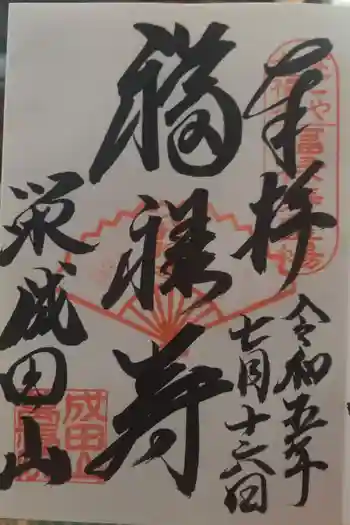 奉拝
令和五年
七月十六日
福禄寿
栄成田山
成田山